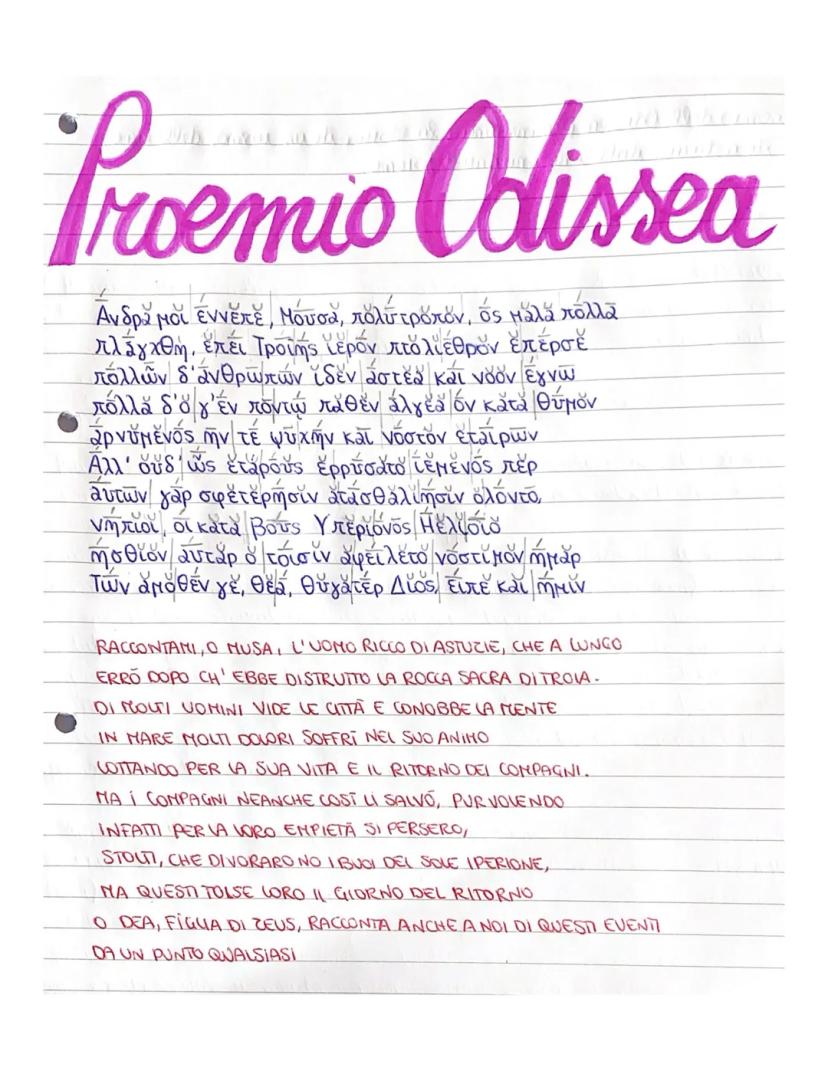 Proemio Odissea
Ἄνδρα μοι ἔννεπε, Μοῦσα, πολύτροπον, ὅς μάλα πολλὰ
πλάγχθη, ἐπεὶ Τροίης ἱερὸν πτολίεθρον ἔπερσε
πολλῶν δ'ἀνθρώπων ἴδεν ἄστεα καὶ νόον ἔγνω
πολλὰ δ'ὅ γ'ἐν πόντῳ πάθεν ἄλγεα ὃν κατὰ θυμόν
ἀρνύμενος ἥν τε ψυχὴν καὶ νόστον ἑταίρων
Ἀλλ' οὐδ' ὣς ἑτάρους ἐρρύσατο ἱέμενός περ
αὐτῶν γὰρ σφετέρῃσιν ἀτασθαλίῃσιν ὄλοντο,
νήπιοι, οἳ κατὰ βοῦς Ὑπερίονος Ἠελίοιο
ἤσθιον αὐτὰρ ὁ τοῖσιν ἀφείλετο νόστιμον ἦμαρ
Τῶν ἁμόθεν γε, θεά, θύγατερ Διός, εἰπὲ καὶ ἡμῖν
RACCONTAMI, O MUSA, L'UOMO RICCO DI ASTUZIE, CHE A LUNGO
ERRÒ DOPO CH'EBBE DISTRUTTO LA ROCCA SACRA DI TROIA.
DI MOLTI UOMINI VIDE LE CITTÀ E CONOBBE LA MENTE
IN MARE MOLTI DOLORI SOFFRÌ NEL SUO ANIMO
LOTTANDO PER LA SUA VITA E IL RITORNO DEI COMPAGNI.
MA I COMPAGNI NEANCHE COSÌ LI SALVÒ, PUR VOLENDO
INFATTI PER LA LORO EMPIETÀ SI PERSERO,
STOLTI, CHE DIVORARONO I BUOI DEL SOLE IPERIONE,
MA QUESTI TOLSE LORO IL GIORNO DEL RITORNO
O DEA, FIGLIA DI ZEUS, RACCONTA ANCHE A NOI DI QUESTI EVENTI
DA UN PUNTO QUALSIASI